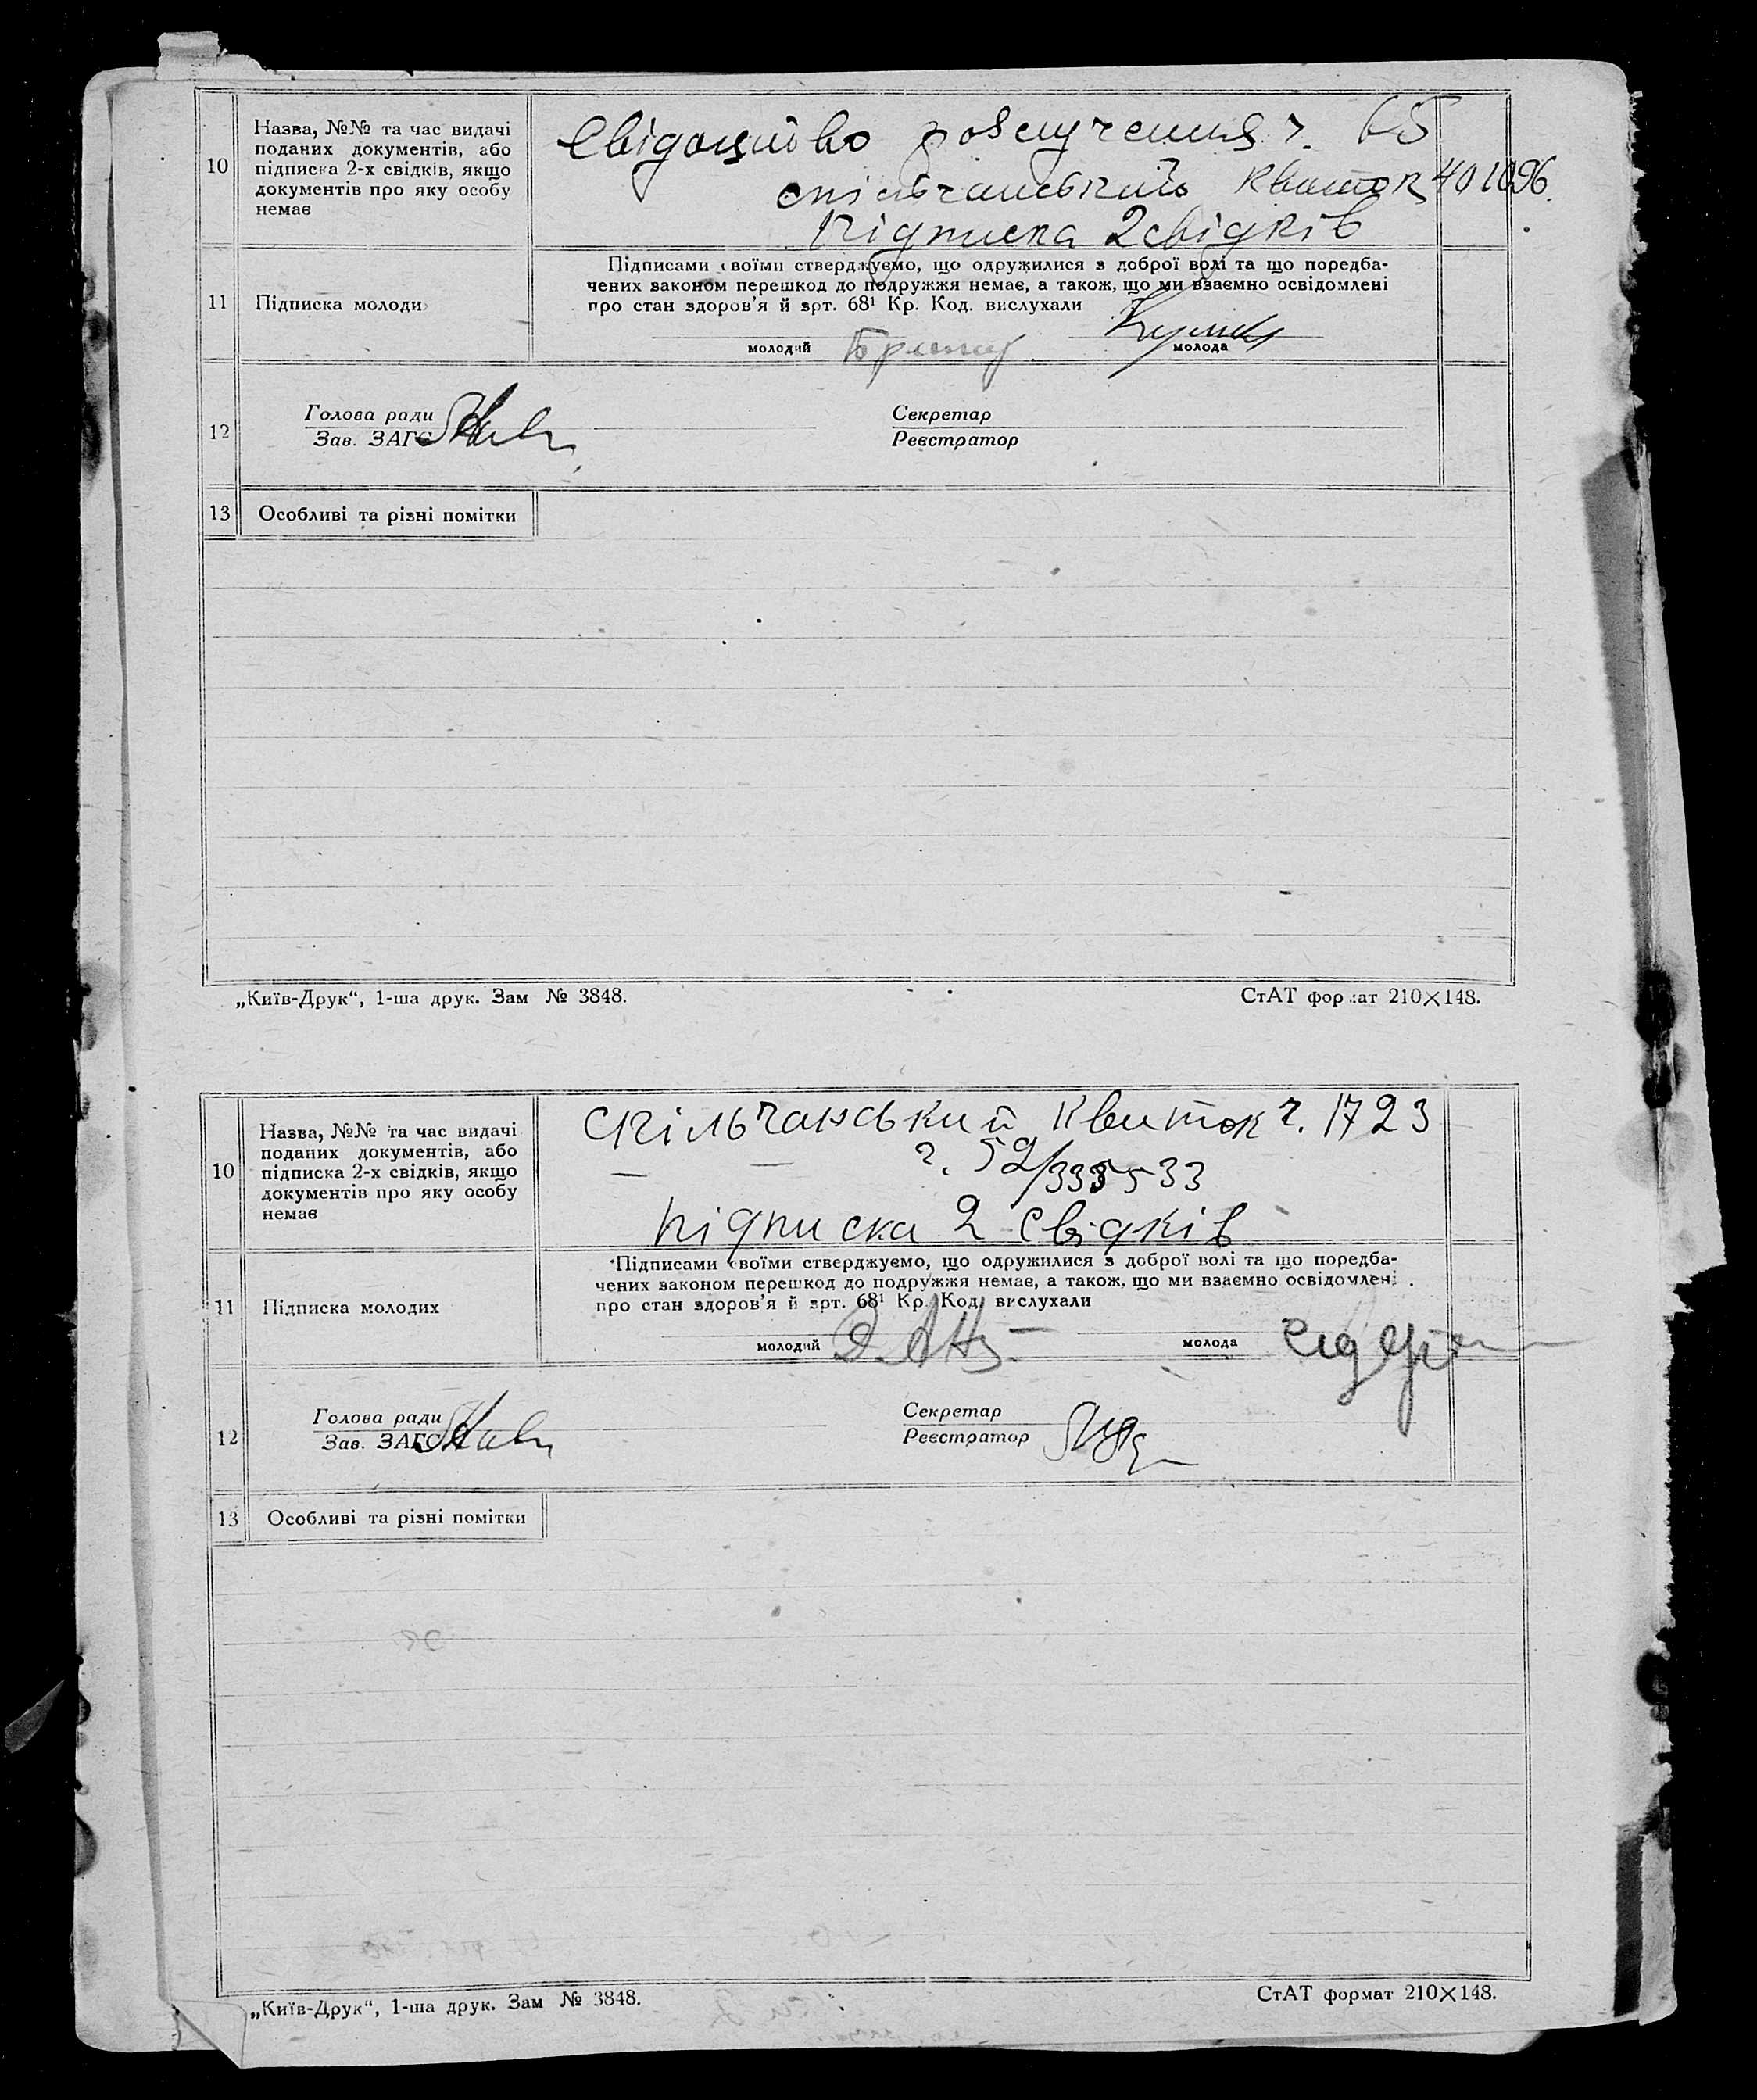 10
Назва, №№ та час видачі
поданих документів, або
підписка 2-х свідків, якщо
документів про яку особу
немає
Свідоцтво розлучення ч. 65
спільчанський квиток 401096.
Підписка 2 свідків
11
Підписка молоди
Підписами своїми стверджуємо, що одружилися з доброї волі та що поредба-
чених законом перешкод до подружжя немає, а також, що ми взаємно освідомлені
про стан здоров'я й арт. 68¹ Кр. Код. вислухали
молодий
молода
12
Голова ради
Зав. ЗАГС
Секретар
Реєстратор
13
Особливі та різні помітки
„Київ-Друк“, 1-ша друк. Зам № 3848.
СтАТ формат 210×148.
10
Назва, №№ та час видачі
поданих документів, або
підписка 2-х свідків, якщо
документів про яку особу
немає
Спільчанський квиток ч. 1723
— — ч. 52/
підписка 2 свідків
11
Підписка молодих
Підписами своїми стверджуємо, що одружилися з доброї волі та що поредба-
чених законом перешкод до подружжя немає, а також, що ми взаємно освідомлені
про стан здоров'я й арт. 68¹ Кр. Код. вислухали
молодий
молода
12
Голова ради
Зав. ЗАГС
Секретар
Реєстратор
13
Особливі та різні помітки
„Київ-Друк“, 1-ша друк. Зам № 3848.
СтАТ формат 210×148.